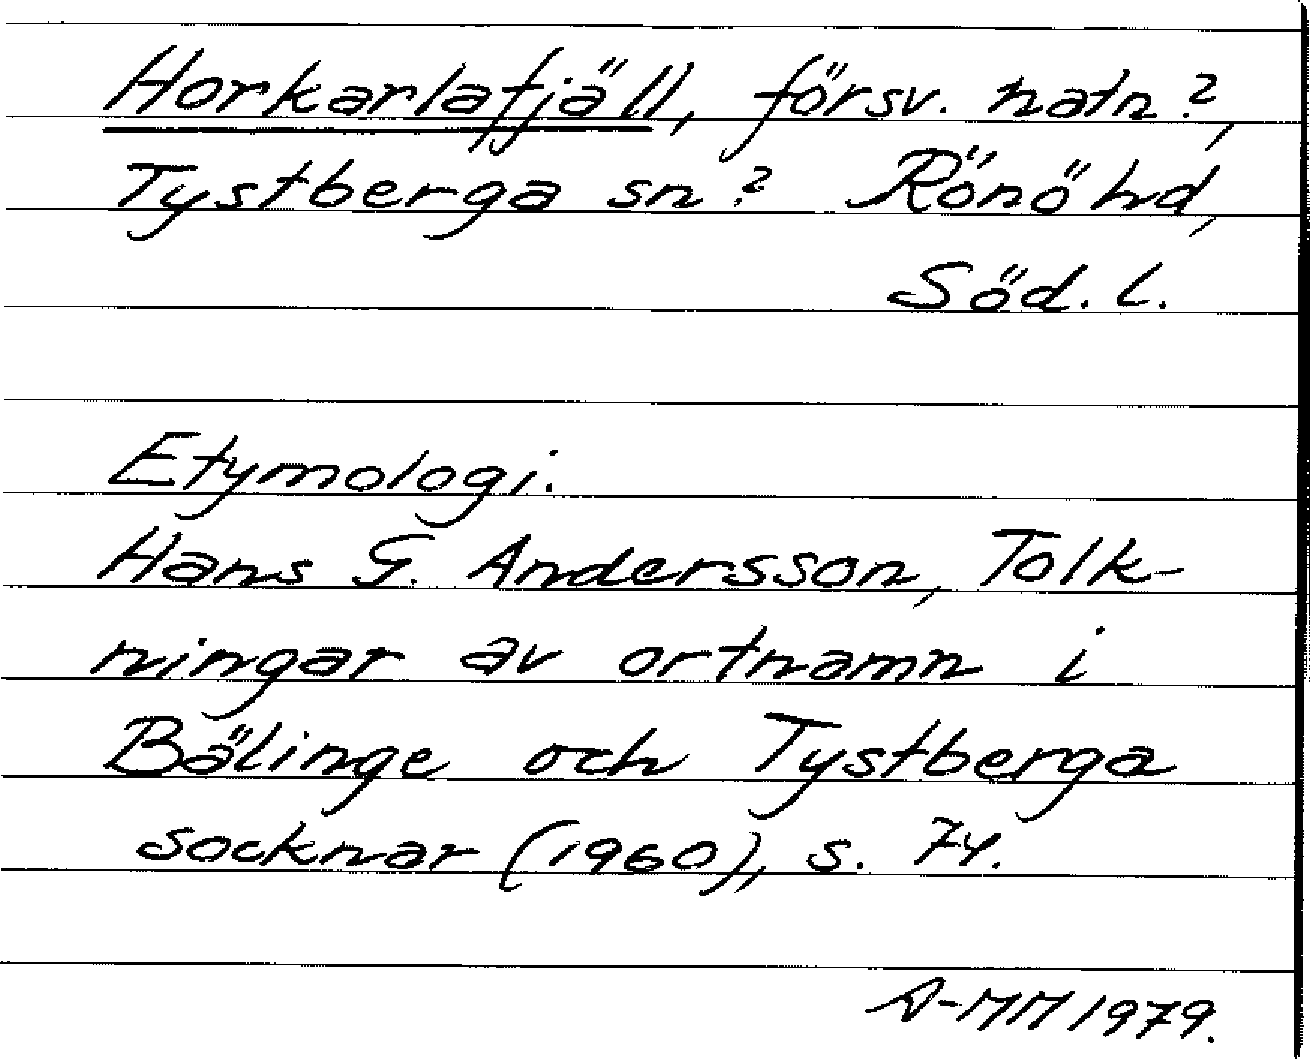 Horkarlafjäll, försv. natn?,
Tystberga sn? Rönö hd,
Söd. l.
Etymologi.
Hans G. Andersson, Tolk-
ningar av ortnamn i
Bälinge och Tystberga
socknar (1960), s. 74.
A-MM 1979.